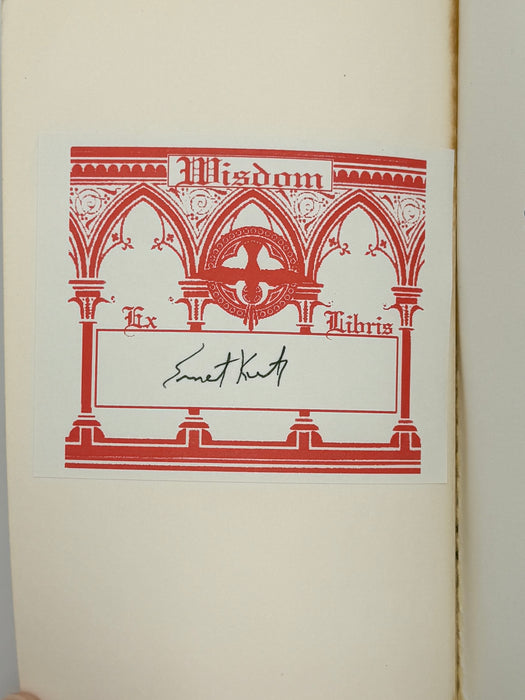 Wisdom
Ex Libris
Ernest Kurtz